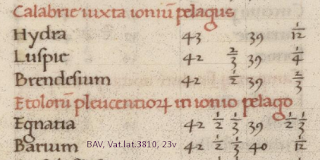 Calabrie iuxta ioniū pelagus
Hydra 43 39 1/12
Luspie 42 2/3 39 1/4
Brendesium 42 1/2 39 2/3
Etolorū pleucentioꝝ in ionio pelago
Egnatia 42 1/2 1/3 39 1/2 1/3
Barium 42 1/2 1/3 40 1/12
BAV, Vat.lat.3810, 23v